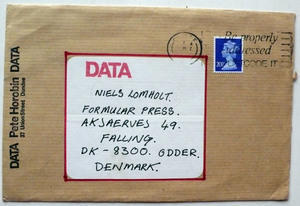 DATA Pete Horobin DATA
37 Union Street Dundee
Be properly
addressed
POSTCODE IT
DATA
NIELS LOMHOLT.
FORMULAR PRESS.
AKSAERVES 49.
FALLING.
DK - 8300. ODDER.
DENMARK.